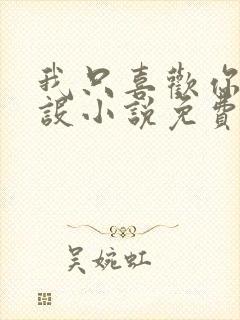 我只喜歡你
設小說免費
吳婉虹